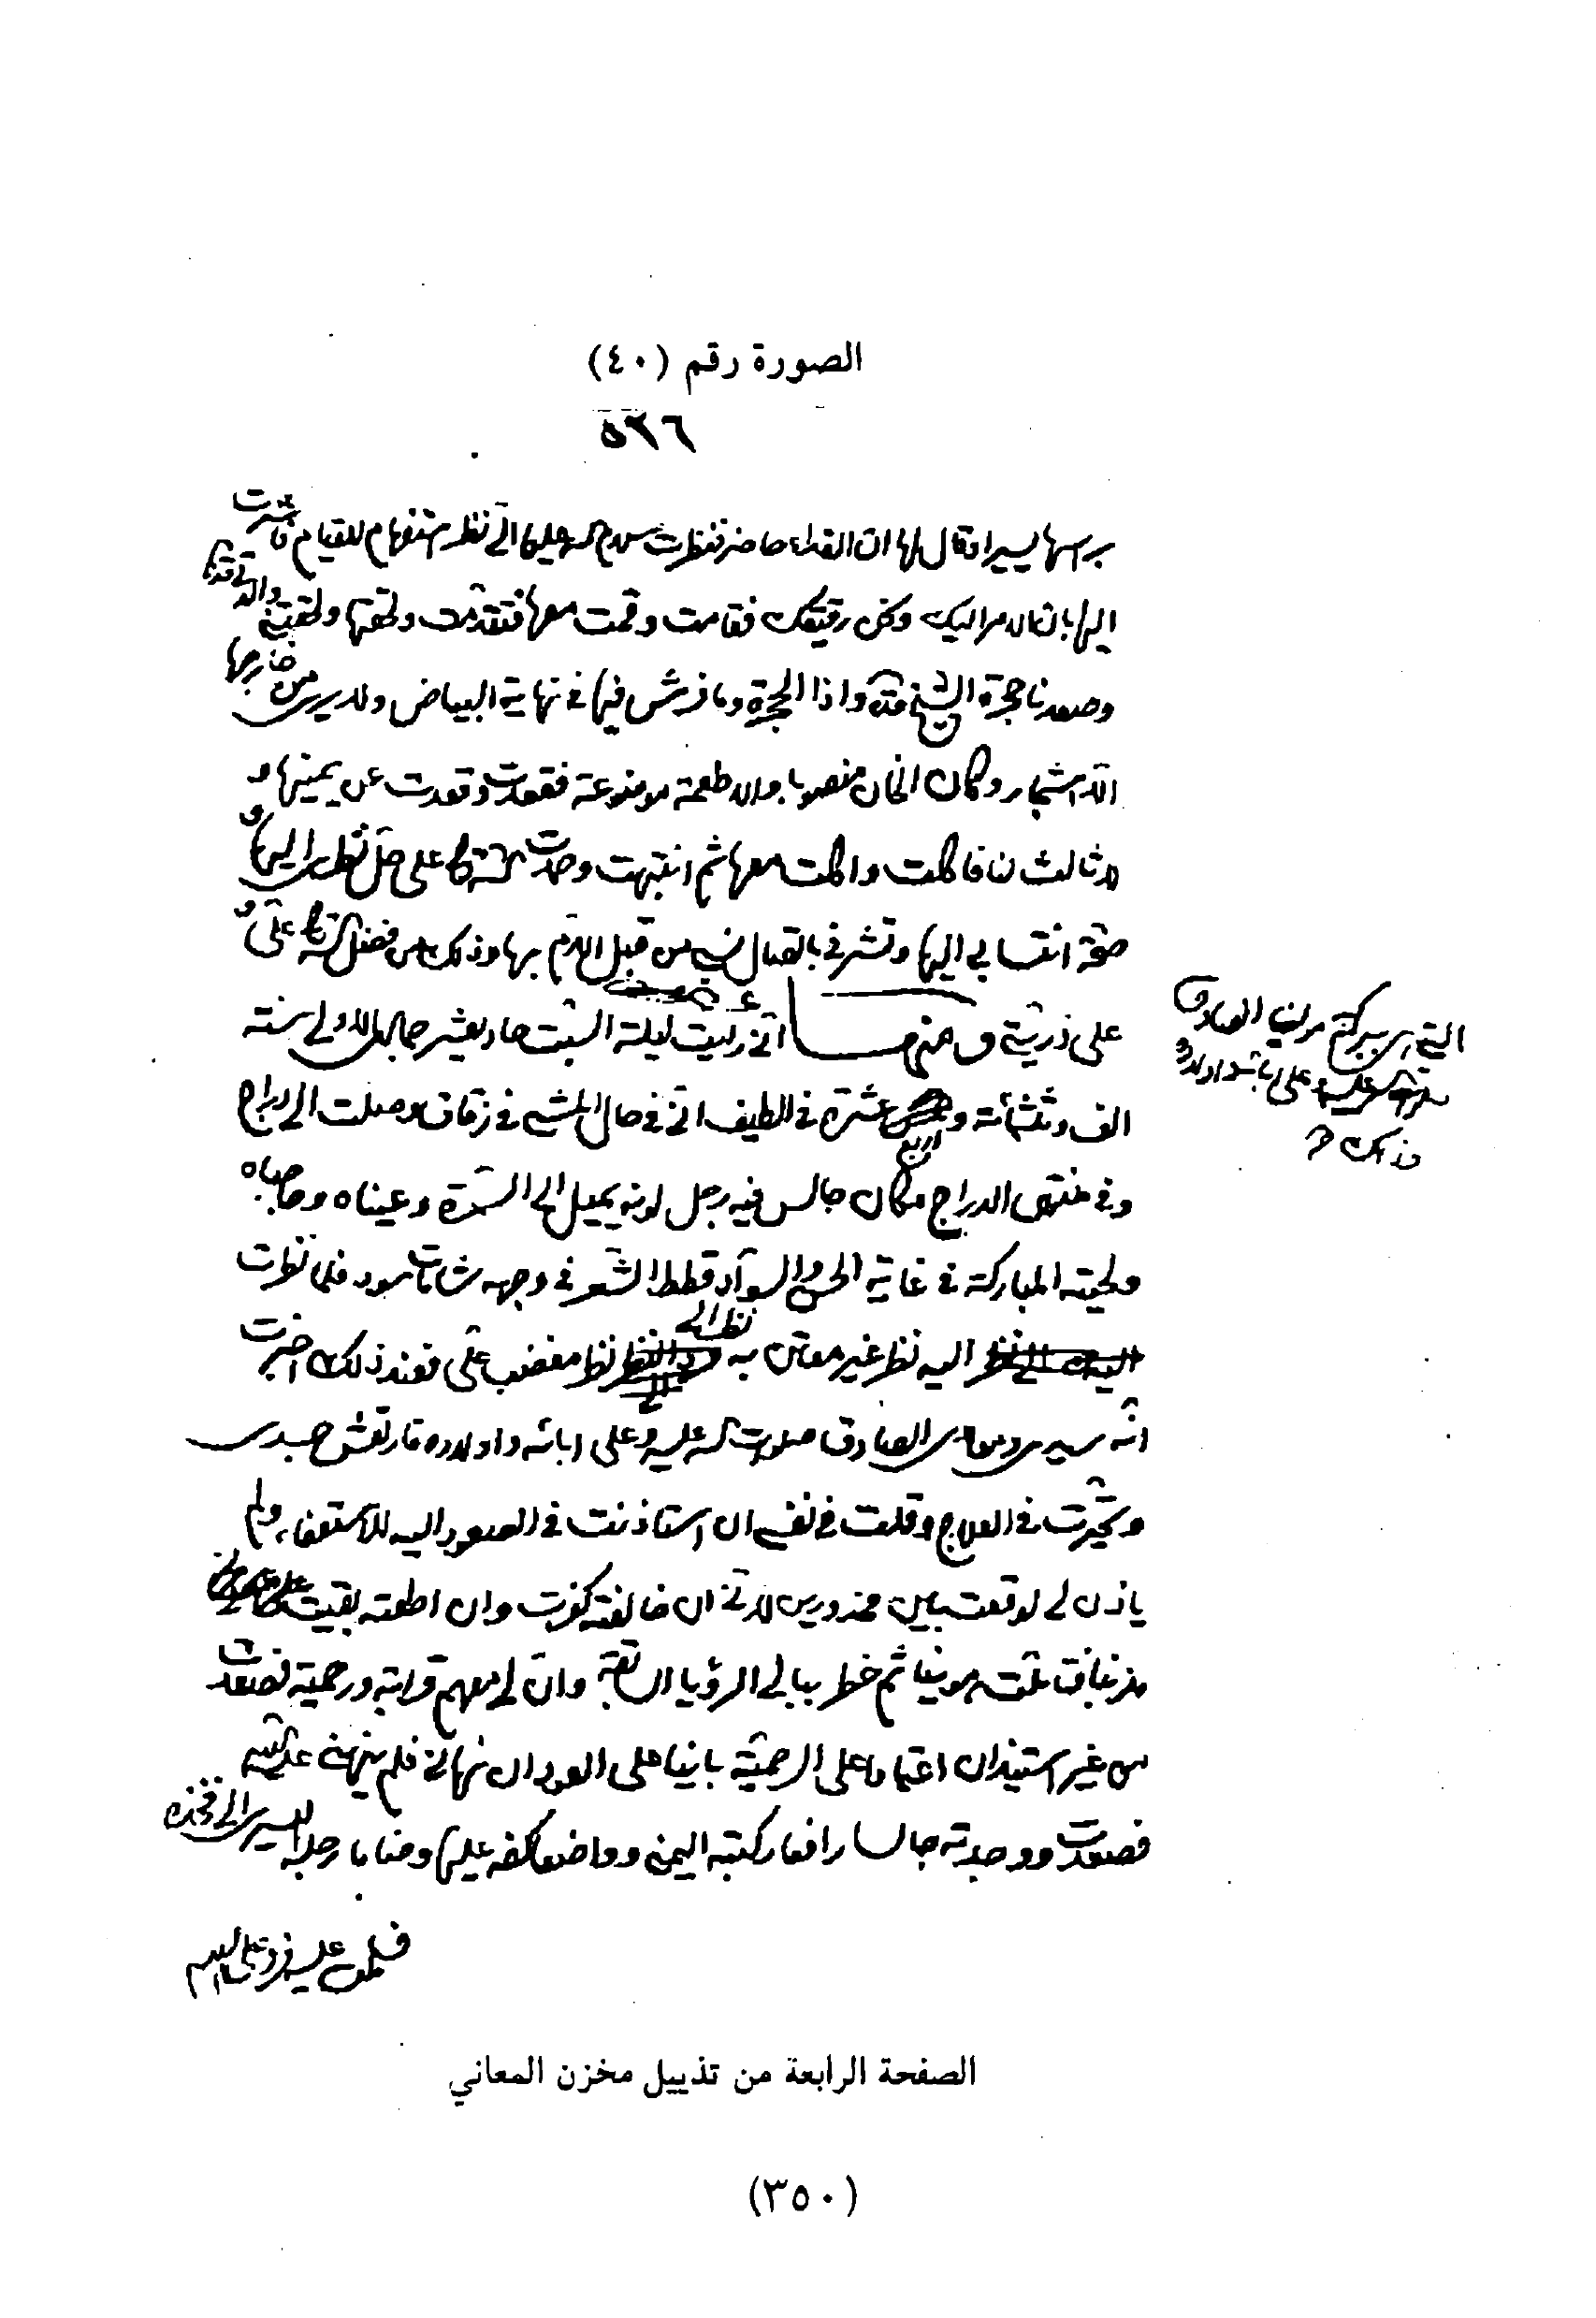 الصورة رقم (٤٠)
٥٢٦
براسها يسيرا فقال لها ان الغداء حاضر فنظرت سلام الله عليها الى نظر استفهام للقيام فاشرت
اليها بان الامر اليك ونحن رفيقك فقامت وقمت معها فتقدمت ولحقتها ولحقتني والدتي
وصعدنا حجرة الشيخ واذا الحجرة وما فرش فيها في نهاية البياض ولا يرى من خارجها
الا اشجار وكان الخان منصوبا والاطعمة موضوعة فقعدت وقعدت عن يمينها و
لا ثالث لنا فاكلت واكلت معها ثم انتبهت وحمدت الله تعالى على نظرها الي و
صحة انتسابي اليها وتشرفي بالقبال نسبي من قبل الام بها وذلك من فضل الله تعالى علي و
على ذريتي ومنها اني رايت ليلة السبت حادي عشر جمادى الاولى سنة
الف وثلثمائة و اربع عشرة في الطيف اني في حال المشي في زقاق وصلت الى الدراج
وفي منتهى الدراج مكان جالس فيه رجل لونه يميل الى السمرة وعيناه وحاجباه
ولحيته المباركة في غاية الحسن والسواد قطط الشعر في وجهه شامات سود فلما نظرت
اليه نظر غير معتن به نظر الي نظر مغضب علي فعند ذلك اخبرت
انه سيدي ومولاي الصادق صلوات الله عليه وعلى ابائه واولاده فارتعش جسدي
وتحيرت في العلاج وقلت في نفسي ان استاذنت في الصعود اليه للاستعفاء ولم
ياذن لي لوقعت بين محذورين لاني ان خالفته كفرت وان اطعته بقيت على
ثم خطر ببالي الرؤيا السابقة وان لي معهم قرابة ورحمية فصعدت
من غير استيذان اعتمادا على الرحمية بانيا على العود ان نهاني فلم ينهني عليه السلام
فصعدت ووجدته جالسا رافعا ركبته اليمنى وواضعا كفه عليها وضاما رجله اليسرى الى فخذه
فسلمت عليه فرد علي السلام
التي ببركة مولاي الصادق
سلام الله عليه وعلى ابائه واولاده
ذلك
الصفحة الرابعة من تذييل مخزن المعاني
(٣٥٠)